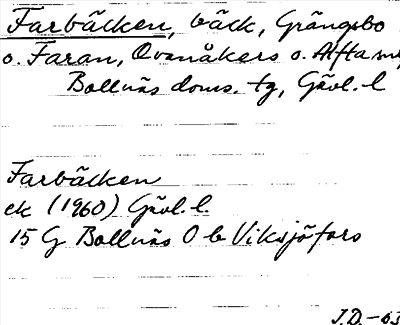 Farbäcken, bäck, Grängsbo
o. Faran, Ovanåkers o. Alfta sn,
Bollnäs doms. tg, Gävl. l
Farbäcken
ek (1960) Gävl. l.
15 G Bollnäs O b Viksjöfors
J.D.-63